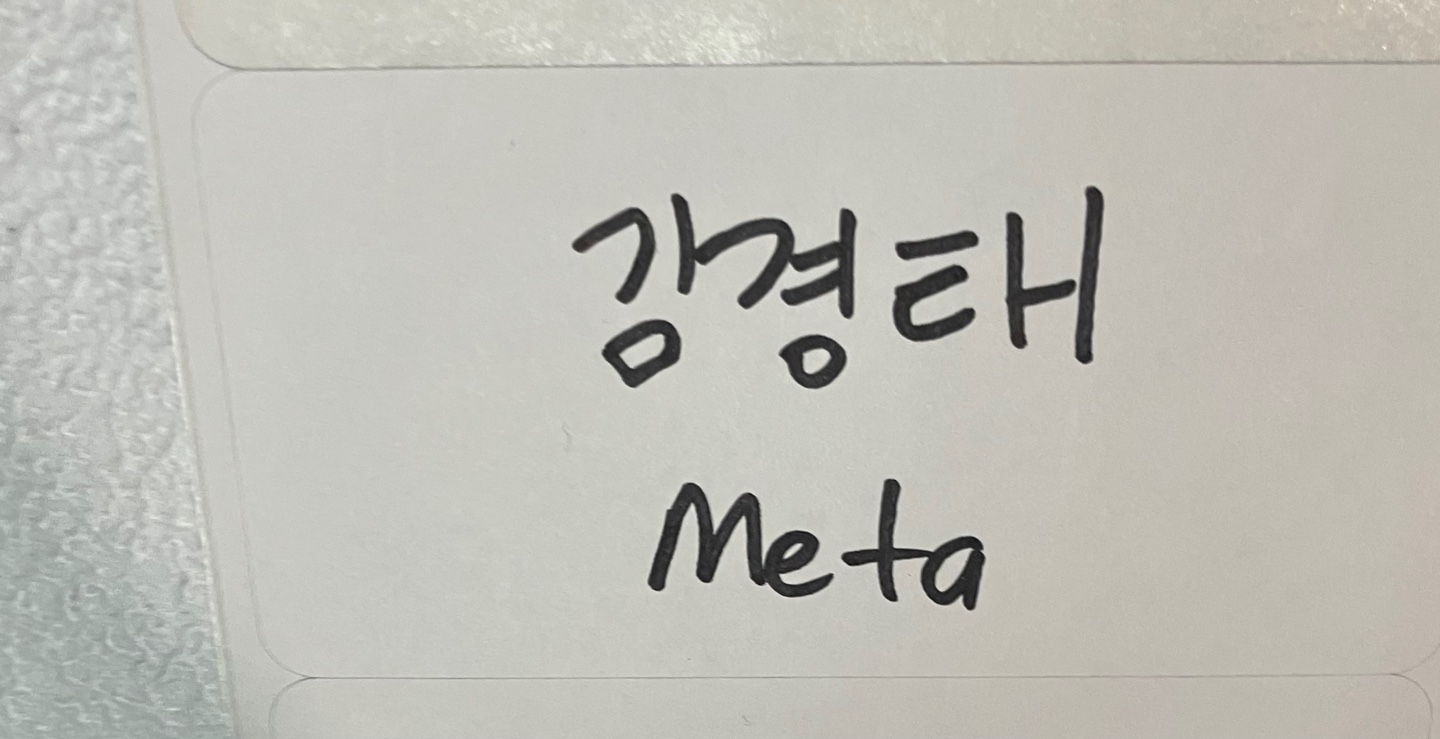 강경태
Meta